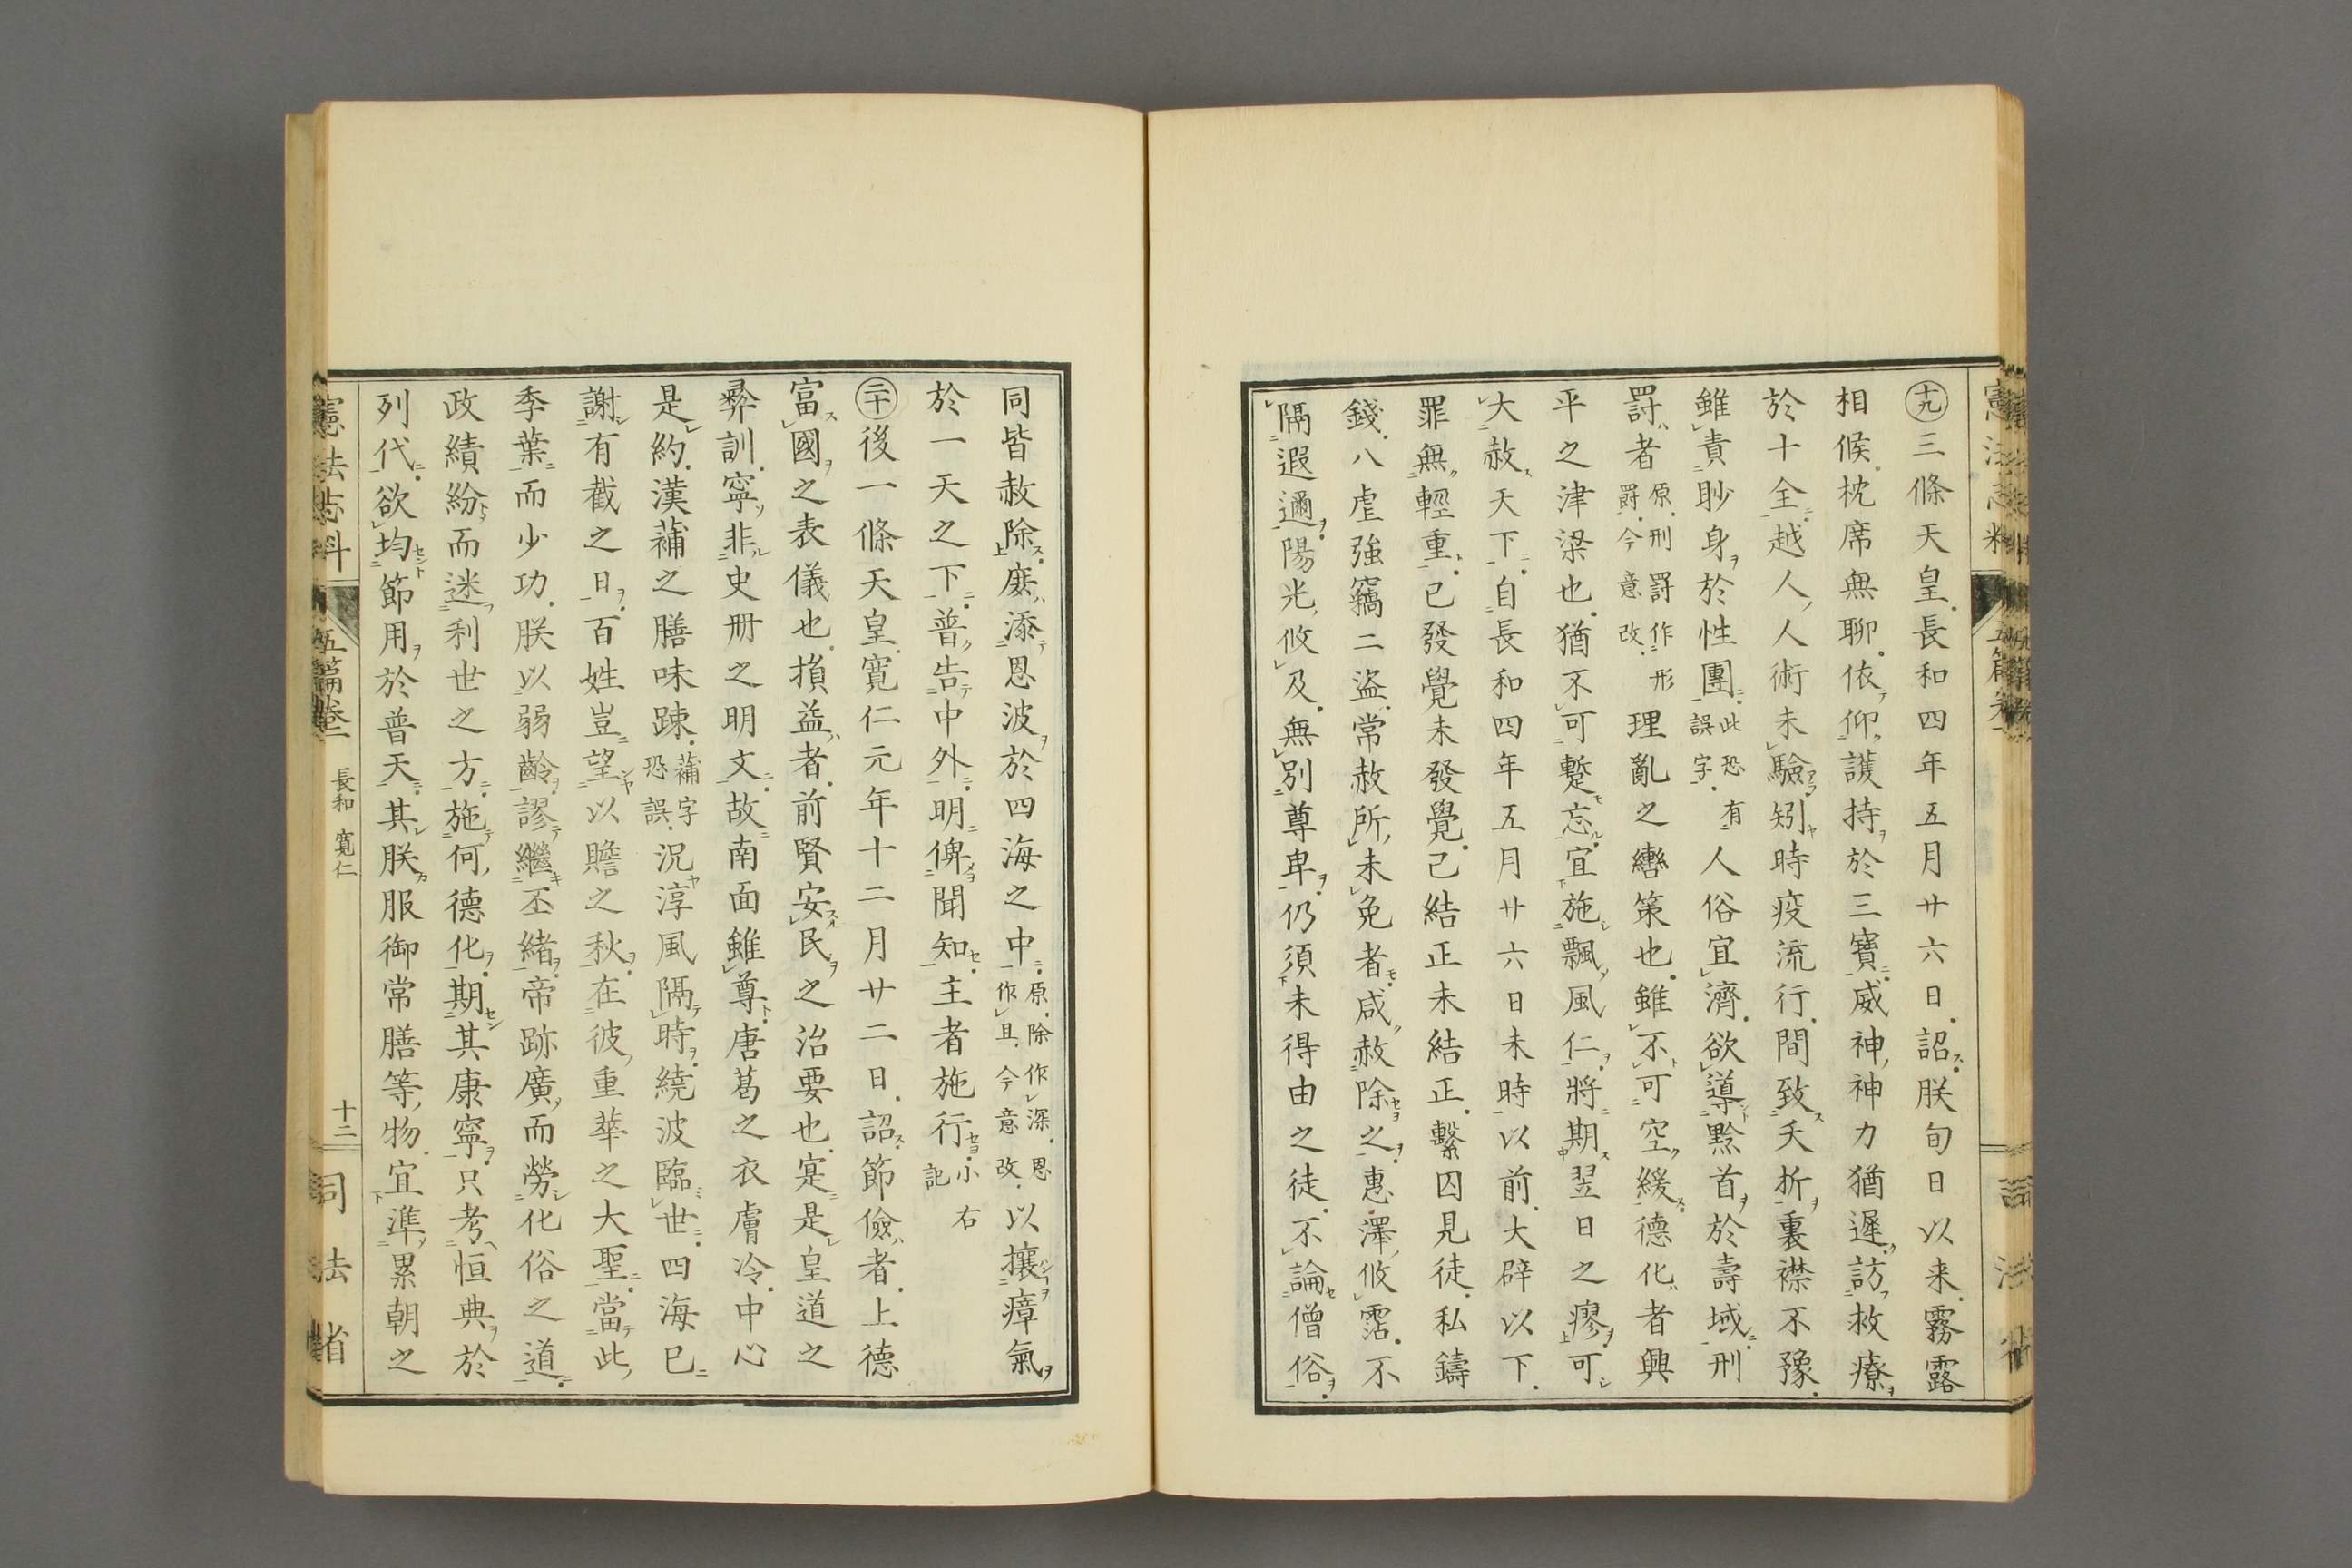 ㊉九三條天皇長和四年五月廿六日詔朕旬日以来霧露
相候枕席無聊依仰護持於三寶威神神力猶遲訪救療
於十全越人人術未驗矧時疫流行間致夭折裏襟不豫
雖責眇身於性團此恐誤字有人俗宜濟欲導黔首於壽域刑
罸者原刑罸作形爵今意改理亂之轡策也雖不可空緩德化者興
平之津梁也猶不可蹔忘宜施飄風仁將期翌日之瘳可
大赦天下自長和四年五月廿六日未時以前大辟以下
罪無輕重已發覺未發覺已結正未結正繋囚見徒私鑄
錢八虐強竊二盜常赦所未免者咸赦除之惠澤攸霑不
隔遐邇陽光攸及無別尊卑仍須未得由之徒不論僧俗
同皆赦除庶添恩波於四海之中原除作深恩作且今意改以攘瘴氣
於一天之下普告中外明俾聞知主者施行小右記
㊁十後一條天皇寛仁元年十二月廿二日詔節儉者上德
富國之表儀也損益者前賢安民之治要也寔是皇道之
彛訓寧非史册之明文故南面雖尊唐葛之衣膚冷中心
是約漢蒲之膳味踈蒲字恐誤況淳風隔時繞波臨世四海已
謝有截之日百姓豈望以贍之秋在彼重華之大聖當此
季葉而少功朕以弱齡謬繼丕緒帝跡廣而勞化俗之道
政績紛而迷利世之方施何德化期其康寧只考恒典於
列代欲均節用於普天其朕服御常膳等物宜準累朝之
憲法志料 五篇卷一 長和 寛仁 十二 司法省